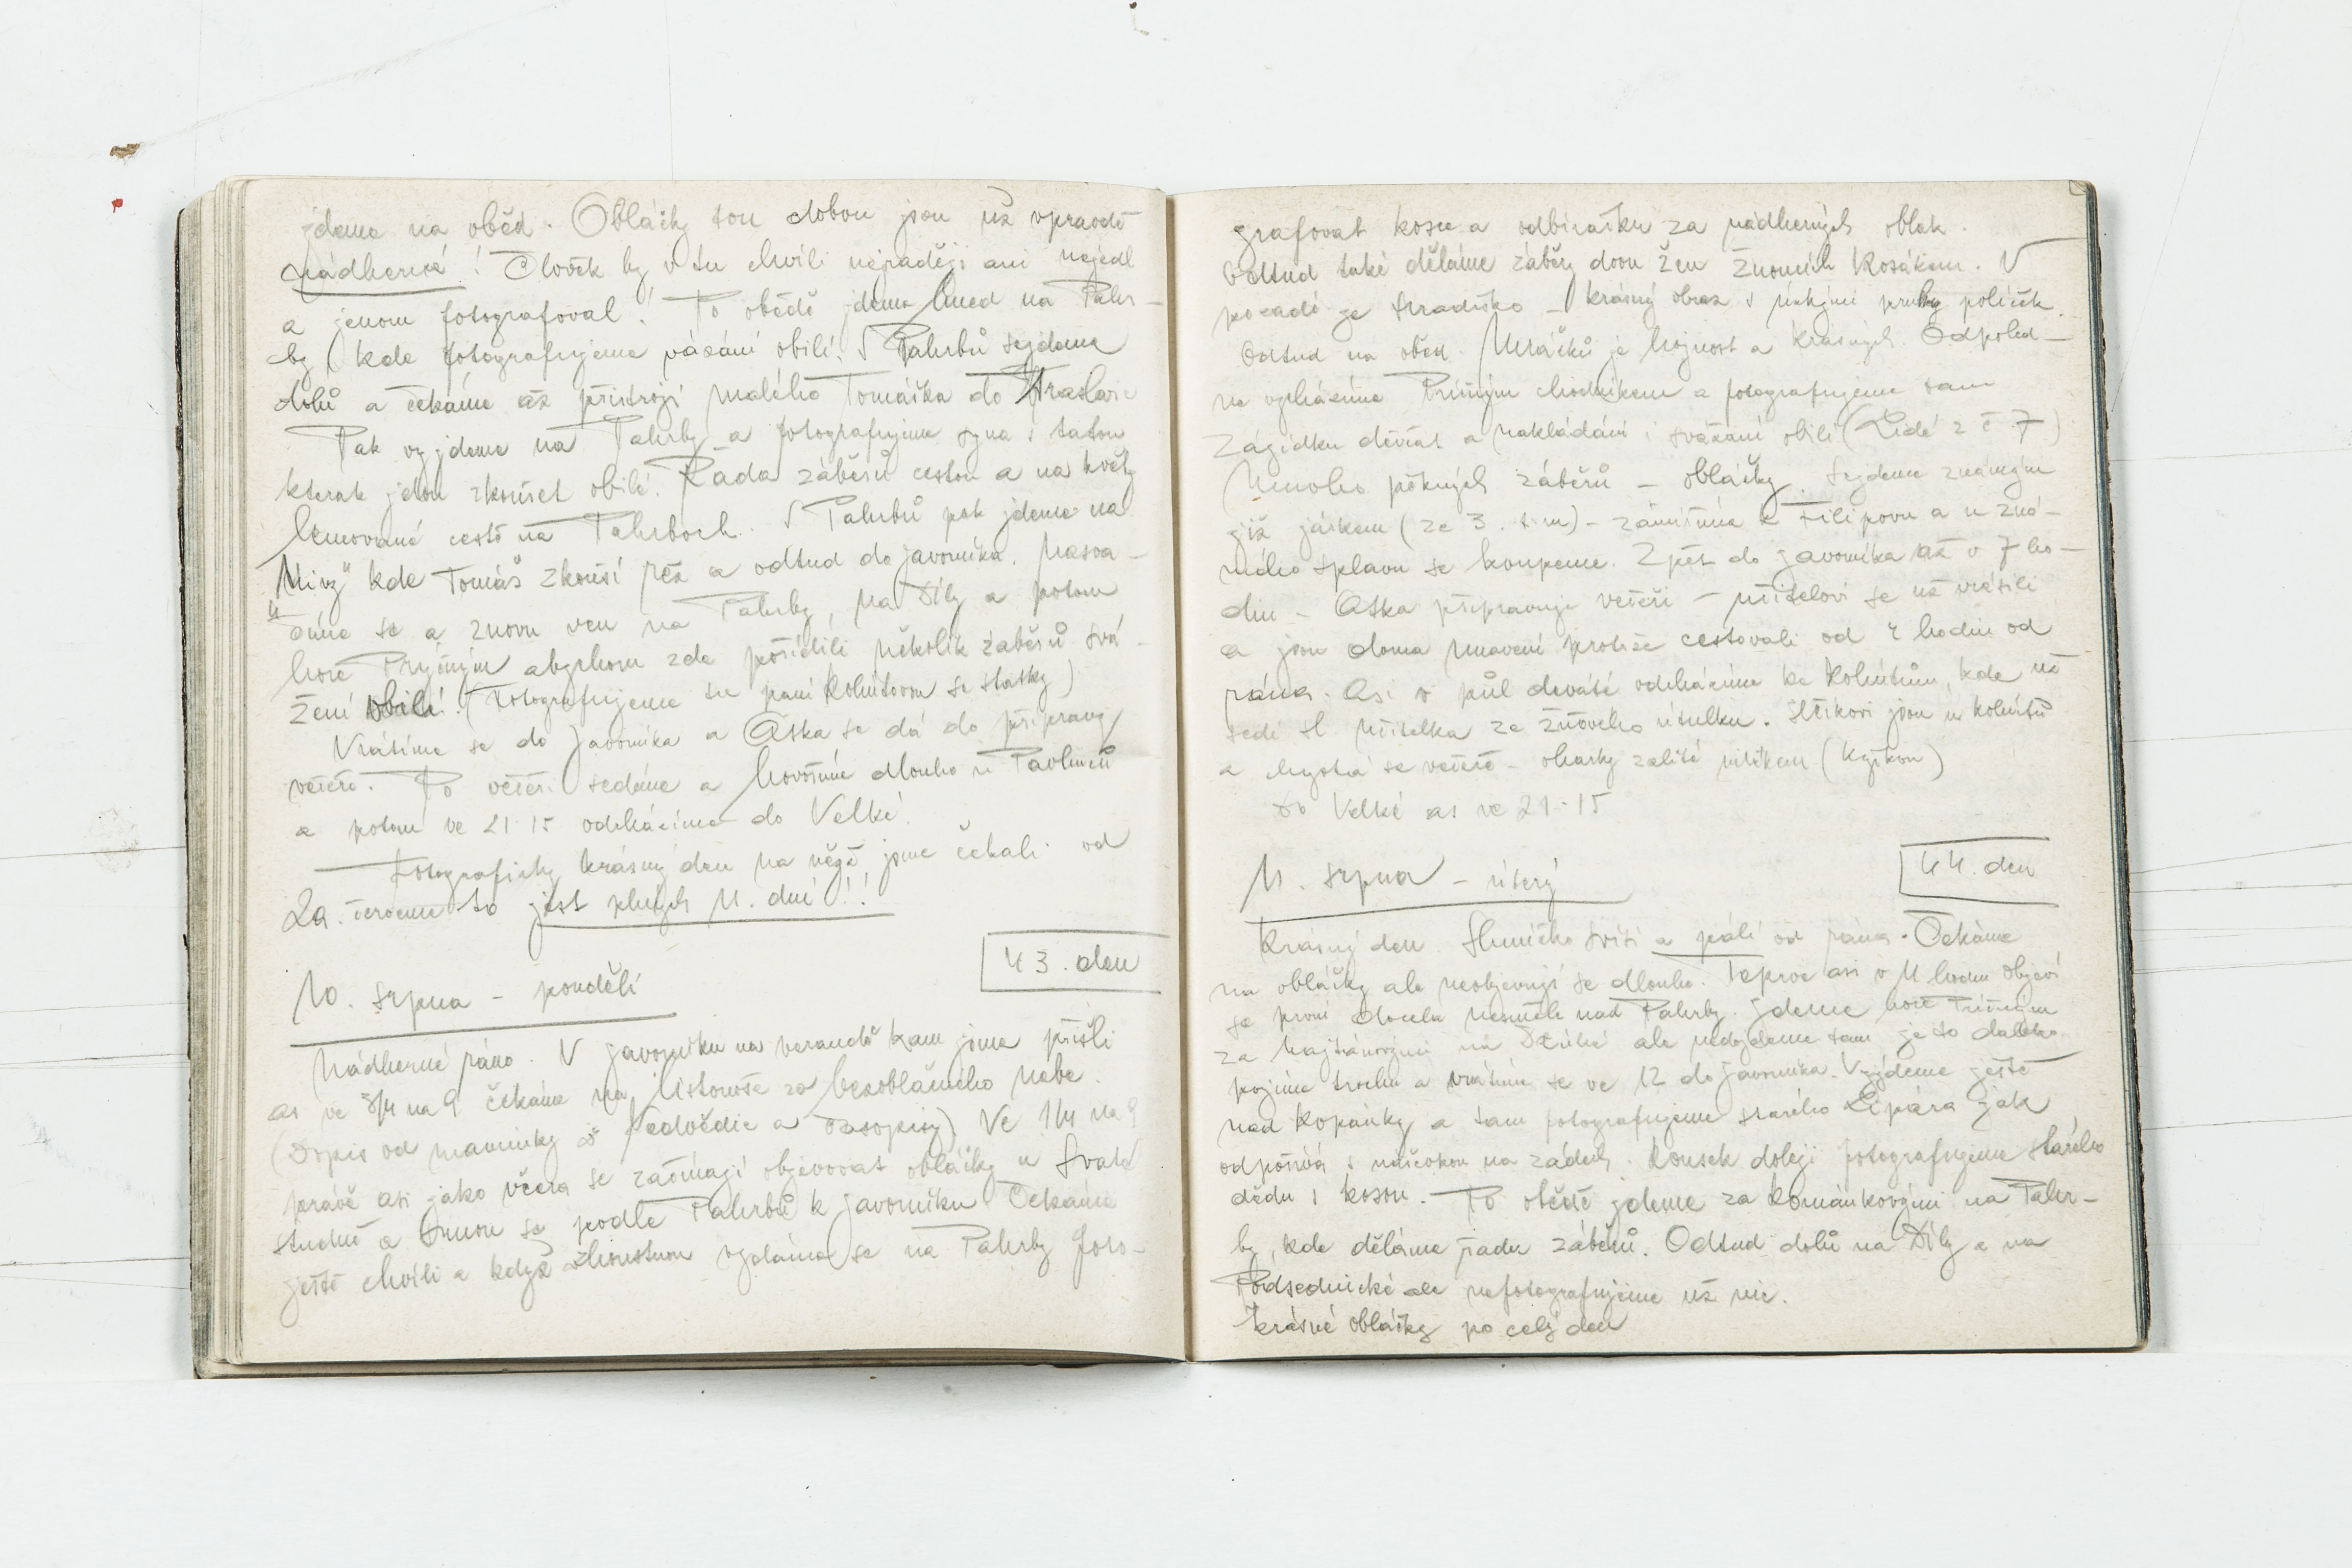 jdeme na oběd. Obláčky tou dobou jsou už vpravdě
nádherné! Člověk by v tu chvíli nejraději ani nejedl
a jenom fotografoval! Po obědě jdeme hned na Pahr-
by kde fotografujeme vázání obilí. S Pahrbů sejdeme
dolů a čekáme až přistrojí malého Tomáška do
Pak vyjdeme na Pahrby a fotografujeme syna s tatou
kterak jdou zkoušet obilí. Řada záběrů cestou a na květy
lemované cestě na Pahrboch. S Pahrbů pak jdeme na
"Nivy" kde Tomáš zkouší rež a odtud do Javorníka. Nasva-
číme se a znovu ven na Pahrby, na Díly a potom
hore Pryčným abychom zde pořídili několik záběrů svá-
žení obilí. (Fotografujeme tu paní Kohútovou se statky)
Vrátíme se do Javorníka a Aťka se dá do přípravy
večeře. Po večeři sedáme a hovoříme dlouho u Pavlinců
a potom ve 21.15 odcházíme do Velké.
Fotograficky krásný den na nějž jsme čekali od
29. července to jest plných 11. dní!!
43. den
10. srpna - pondělí
Nádherné ráno. V Javorníku na verandě kam jsme přišli
as ve 3/4 na 9 čekáme na listonoše za bezoblačného nebe.
(Dopis od maminky z Nedvědic a časopisy) Ve 1/4 na 9
právě asi jako včera se začínají objevovat obláčky u Svaté
studně a sunou se podle Pahrbů k Javorníku Čekáme
ještě chvíli a když zhoustnou vydáme se na Pahrby foto-
grafovat kosce a odběračku za nádherných oblak.
Odtud také děláme záběry dvou žen žnoucích kosákem. V
pozadí je Hradisko - krásný obraz s úzkými pruhy políček.
Odtud na oběd. Mráčků je hojnost a krásných. Odpoled-
ne vycházíme Příčným chodníkem a fotografujeme tam
Zágidku děvčat a nakládání i svážení obilí (Lidé z č 7)
Mnoho pěkných záběrů - obláčky. Sejdeme známým
již járkem (ze 3. t.m) - zamíříme k Filipovu a u zná-
mého splavu se koupeme. Zpět do Javorníka až v 7 ho-
din - Aťka připravuje večeři - učitelovi se už vrátili
a jsou doma unavení protože cestovali od 4 hodin od
rána. Asi v půl deváté odcházíme ke Kohútům, kde už
sedí sl. učitelka ze žňového útulku. Slčikovi jsou u Kohútů
a chystá se večeře - okurky zalité mlíčkem (kyškou)
Do Velké as ve 21.15
11. srpna - úterý
44. den
Krásný den. Sluníčko svítí a pálí od rána. Čekáme
na obláčky ale neobjevují se dlouho. Teprve asi v 11 hodin objeví
se první docela nesměle nad Pahrby. Jdeme hore Příčným
za Majtánovými na Dlúhé ale nedojdeme tam je to daleko
pojíme trochu a vrátíme se ve 12 do Javorníka. Vyjdeme ještě
nad Kopánky a tam fotografujeme starého Lipára jak
odpočívá s nůšovkou na zádech. Kousek doleji fotografujeme starého
dědu s kosou. Po obědě jdeme za Románkovými na Pahr-
by, kde děláme řadu záběrů. Odtud dolů na Díly a na
Podsednické ale nefotografujeme už nic.
Krásné obláčky po celý den